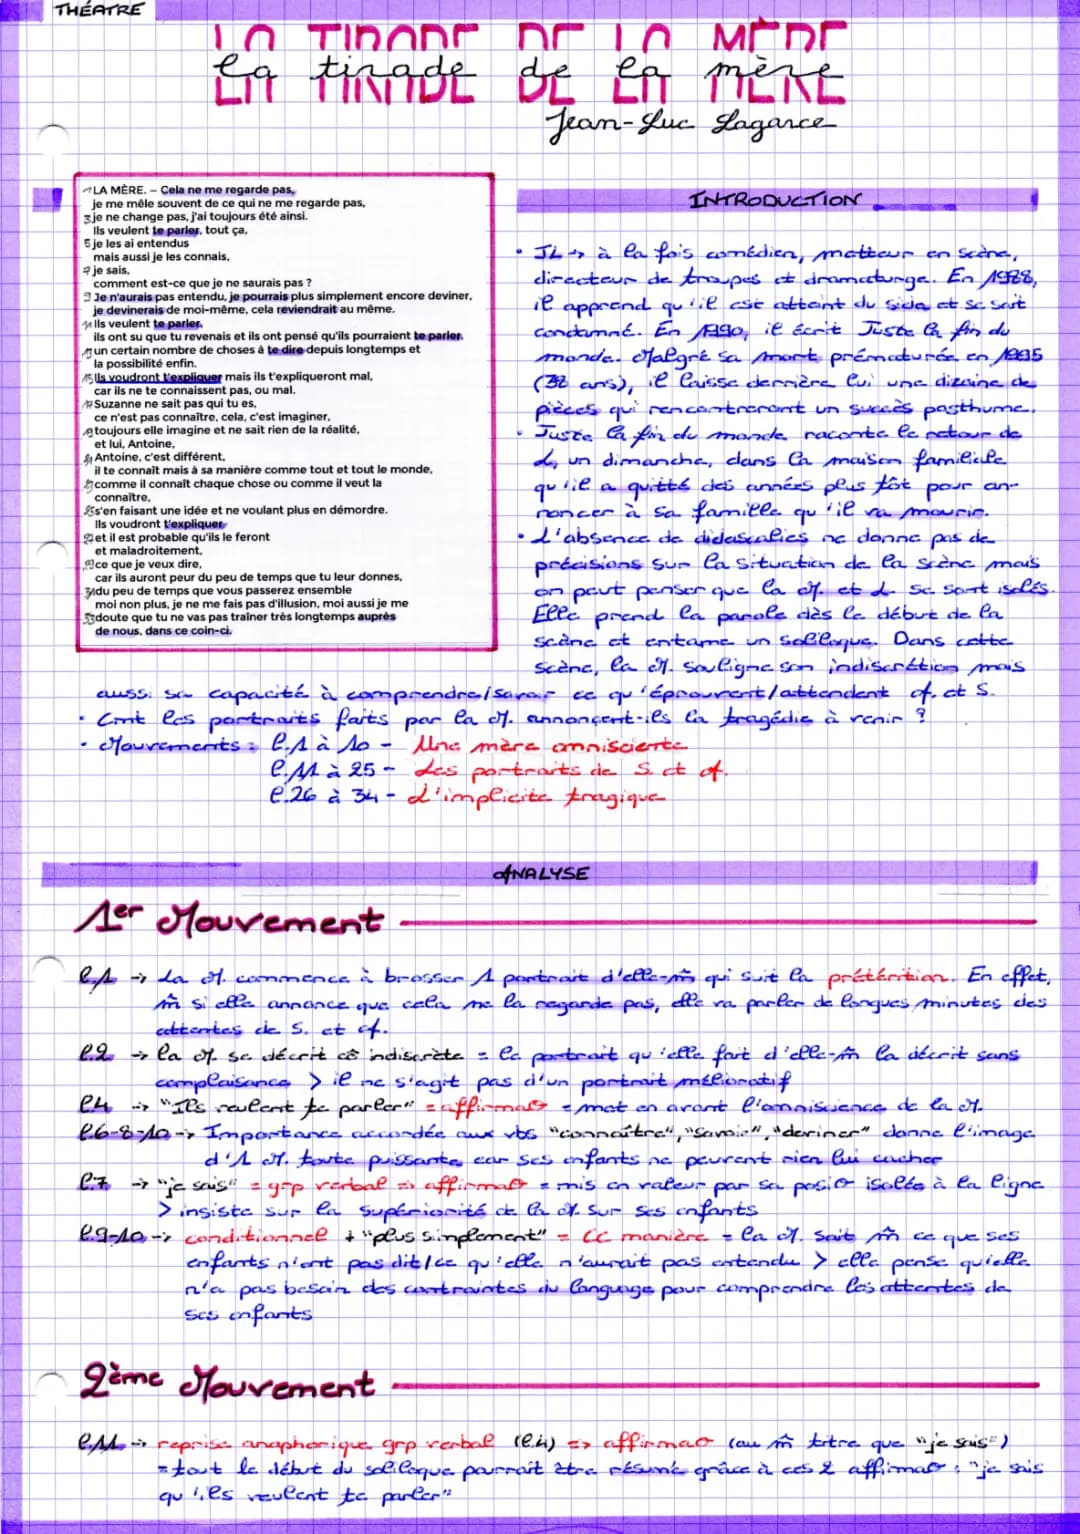 THÉATRE
LA TIRADE DE LA MÈRE
la tirade de la mère
Jean-Luc Lagarce
1 LA MÈRE. – Cela ne me regarde pas,
je me mêle souvent de ce qui ne me regarde pas,
3 je ne change pas, j'ai toujours été ainsi.
Ils veulent te parler, tout ça,
5 je les ai entendus
mais aussi je les connais,
7 je sais,
comment est-ce que je ne saurais pas ?
9 Je n'aurais pas entendu, je pourrais plus simplement encore deviner,
je devinerais de moi-même, cela reviendrait au même.
11 Ils veulent te parler,
ils ont su que tu revenais et ils ont pensé qu'ils pourraient te parler,
13 un certain nombre de choses à te dire depuis longtemps et
la possibilité enfin.
15 Ils voudront t'expliquer mais ils t'expliqueront mal,
car ils ne te connaissent pas, ou mal.
17 Suzanne ne sait pas qui tu es,
ce n'est pas connaître, cela, c'est imaginer,
19 toujours elle imagine et ne sait rien de la réalité,
et lui, Antoine,
21 Antoine, c'est différent,
il te connaît mais à sa manière comme tout et tout le monde,
23 comme il connaît chaque chose ou comme il veut la
connaître,
25 s'en faisant une idée et ne voulant plus en démordre.
Ils voudront t'expliquer
27 et il est probable qu'ils le feront
et maladroitement,
29 ce que je veux dire,
car ils auront peur du peu de temps que tu leur donnes,
31 du peu de temps que vous passerez ensemble
moi non plus, je ne me fais pas d'illusion, moi aussi je me
33 doute que tu ne vas pas traîner très longtemps auprès
de nous, dans ce coin-ci.
INTRODUCTION
• JL → à la fois comédien, metteur en scène,
directeur de troupes et dramaturge. En 1988,
il apprend qu'il est atteint du sida et se sait
condamné. En 1990, il écrit Juste la fin du
monde. Malgré sa mort prématurée en 1995
(38 ans), il laisse derrière lui une dizaine de
pièces qui rencontreront un succès posthume.
• Juste la fin du monde raconte le retour de
L, un dimanche, dans la maison familiale
qu'il a quitté des années plus tôt pour an-
noncer à sa famille qu'il va mourir.
• L'absence de didascalies ne donne pas de
précisions sur la situation de la scène mais
on peut penser que la M. et L. se sont isolés.
Elle prend la parole dès le début de la
scène et entame un solloque. Dans cette
scène, la M. souligne son indiscrétion mais
aussi sa capacité à comprendre/savoir ce qu'éprouvent/attendent A. et S.
• Cmt les portraits faits par la M. annonçent-ils la tragédie à venir ?
• Mouvements : l.1 à 10 - Une mère omnisciente
l.11 à 25 - Les portraits de S. et A.
l.26 à 34 - L'implicite tragique
ANALYSE
1er Mouvement
l.1 → La M. commence à brosser 1 portrait d'elle-m̂ qui suit la prétérition. En effet,
m̂ si elle annonce que cela ne la regarde pas, elle va parler de longues minutes des
attentes de S. et A.
l.2 → la M. se décrit cô indiscrète = le portrait qu'elle fait d'elle-m̂ la décrit sans
complaisance > il ne s'agit pas d'un portrait mélioratif
l.4 → "Ils veulent te parler" = affirmat° = met en avant l'omniscience de la M.
l.6-8-10 → Importance accordée aux vbs "connaître", "savoir", "deviner" donne l'image
d'1 M. toute puissante car ses enfants ne peuvent rien lui cacher
l.7 → "je sais" = grp verbal => affirmat° = mis en valeur par sa posi° isolée à la ligne
> insiste sur la supériorité de la M. sur ses enfants
l.9-10 → conditionnel + "plus simplement" = CC manière = la M. sait m̂ ce que ses
enfants n'ont pas dit/ce qu'elle n'aurait pas entendu > elle pense qu'elle
n'a pas besoin des contraintes du language pour comprendre les attentes de
ses enfants
2ème Mouvement
l.11 → reprise anaphorique grp verbal (l.4) => affirmat° (au m̂ titre que "je sais")
= tout le début du soliloque pourrait être résumé grâce à ces 2 affirmat° : "je sais
qu'ils veulent te parler"